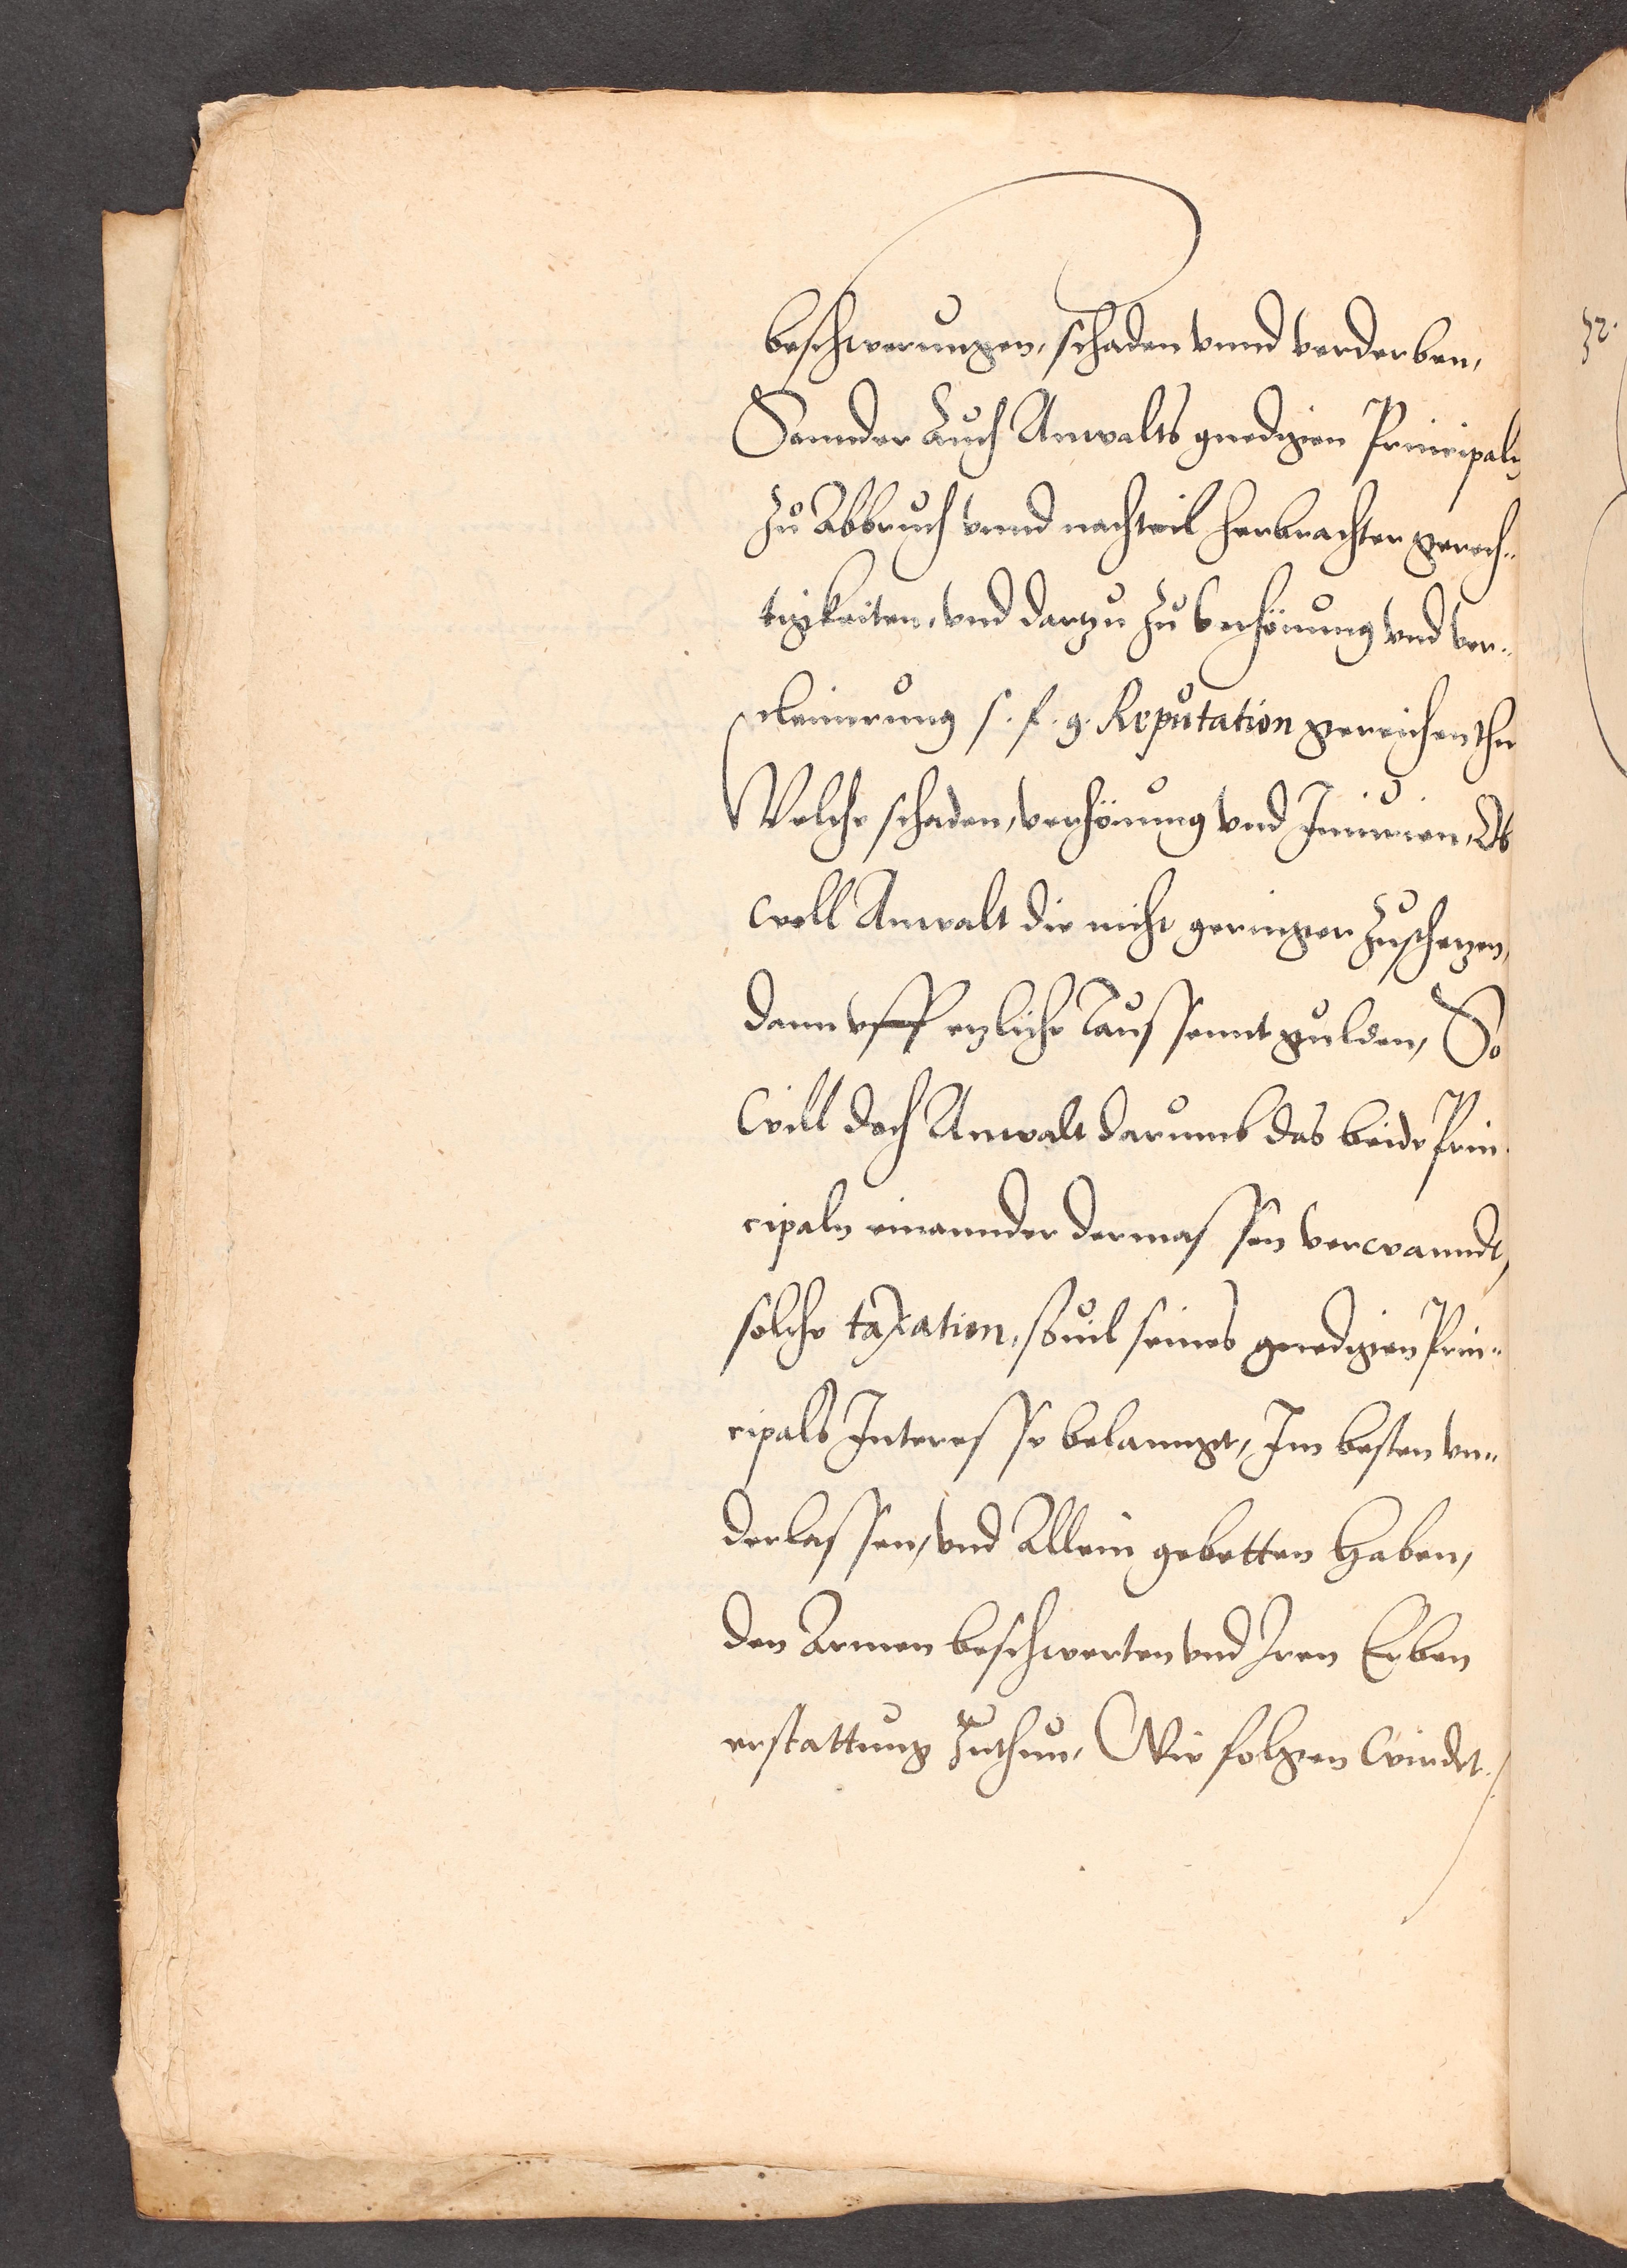 beschwerungen, schaden vnnd verderben,
Sonnder Auch Anwalts gnedigen Principaln
zu Abbruch vnnd nachteil herbrachter gerech¬
tigkeiten, vnd darzu zu Verhönung vnd ver¬
cleinerung s. f. g. Reputation gereichen thu
Welche schaden, verhönung vnd Iniurien, Ob
woll Anwalt die nicht geringer zuschezen,
dann vff ezliche Taussennt gulden, So
will doch Anwalt darumb das beide Prin¬
cipaln einannder dermassen verwanndt,
solche taxation, souil seines gnedigen Prin¬
cipals Interesse belannget, Im besten vn¬
derlassen, vnd Allein gebetten haben,
den Armen beschwerten vnd Iren Erben
erstattung zuthun, Wie folgen wirdt.
32.